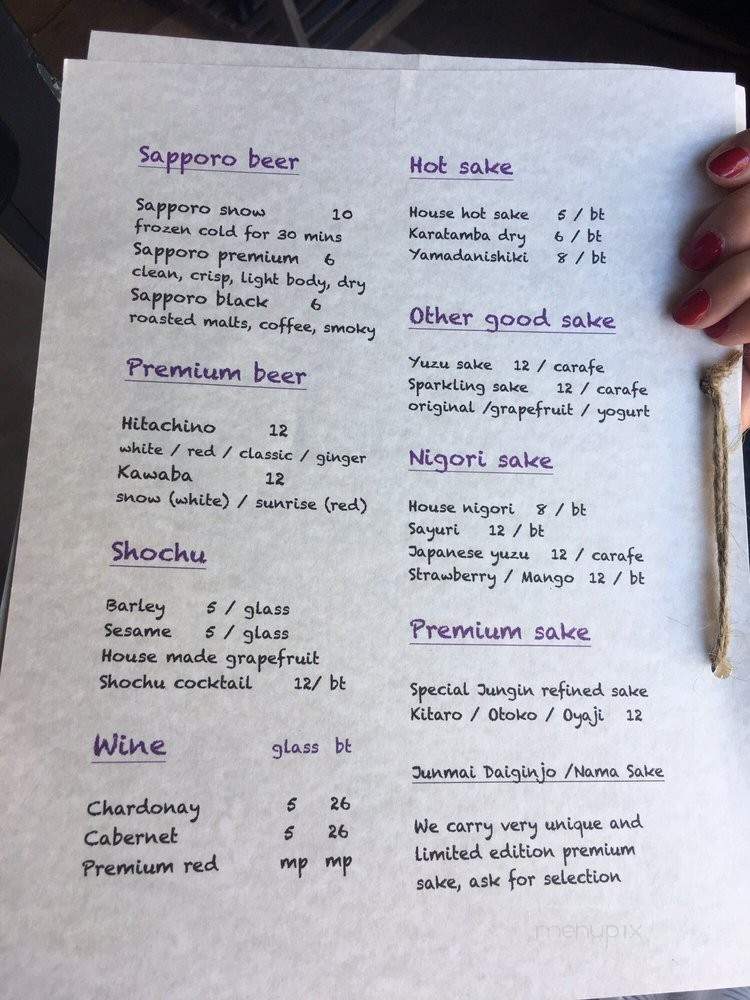 Sapporo beer
Sapporo snow 10
frozen cold for 30 mins
Sapporo premium 6
clean, crisp, light body, dry
Sapporo black 6
roasted malts, coffee, smoky
Premium beer
Hitachino 12
white / red / classic / ginger
Kawaba 12
snow (white) / sunrise (red)
Shochu
Barley 5 / glass
Sesame 5 / glass
House made grapefruit
Shochu cocktail 12/ bt
Wine glass bt
Chardonay 5 26
Cabernet 5 26
Premium red mp mp
Hot sake
House hot sake 5 / bt
Karatamba dry 6 / bt
Yamadanishiki 8 / bt
Other good sake
Yuzu sake 12 / carafe
Sparkling sake 12 / carafe
original /grapefruit / yogurt
Nigori sake
House nigori 8 / bt
Sayuri 12 / bt
Japanese yuzu 12 / carafe
Strawberry / Mango 12 / bt
Premium sake
Special Jungin refined sake
Kitaro / Otoko / Oyaji 12
Junmai Daiginjo /Nama Sake
We carry very unique and
limited edition premium
sake, ask for selection
menupix